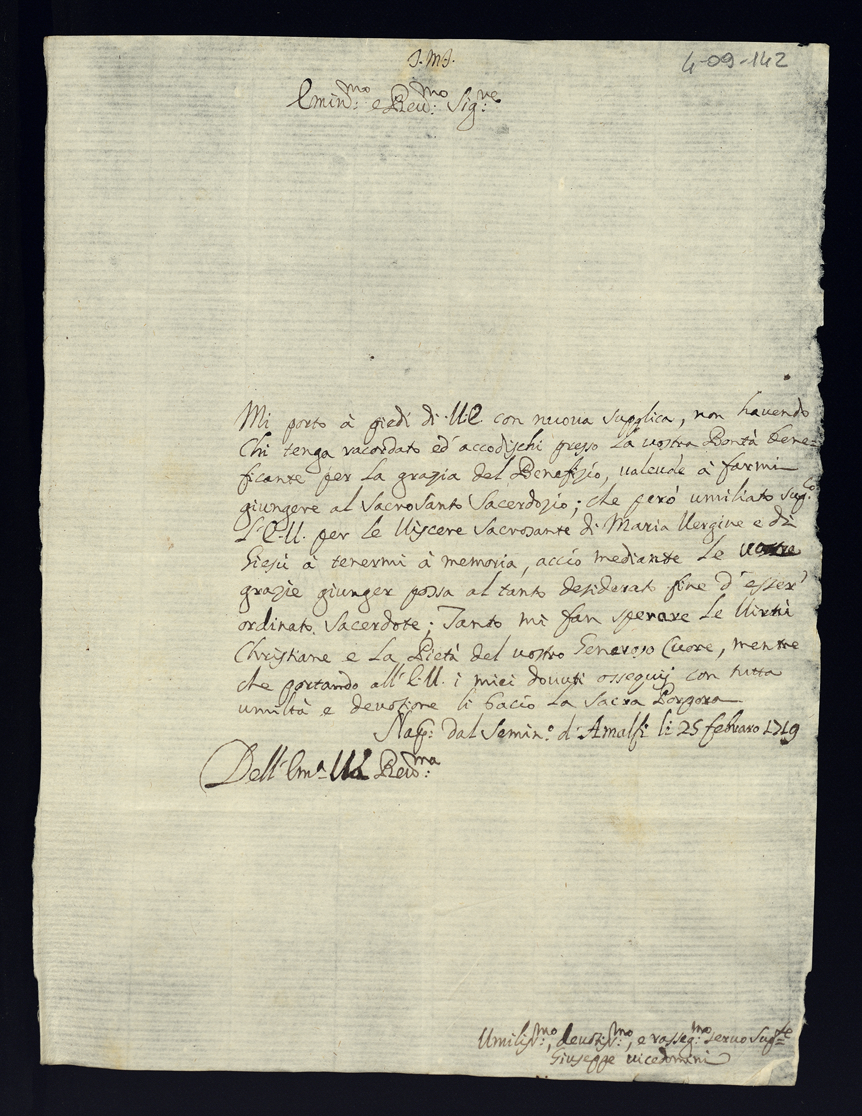 J. M. J.
4-09-142
Emin:mo e Reu:mo Sig:re
Mi porto à piedi di V.E. con nuova supplica, non havendo
chi tenga racordato ed' accodischi presso la vostra Bontà bene=
ficante per la grazia del Benefizio, valevole à farmi
giungere al Sacrosanto Sacerdozio; che però umiliato sup:co
L'E.V. per le Viscere Sacrosante di Maria Vergine e di
Giesù à tenermi à memoria, acciò mediante le vostre
grazie giunger possa al tanto desiderato fine d'esser'
ordinato Sacerdote; Tanto mi fan sperare le Virtù
Christiane e la Pietà del vostro Generoso Cuore, mentre
che portando all'E.V. i miei dovuti ossequij con tutta
umiltà e devotione li bacio la Sacra Porpora
Nap: dal Semin:o d'Amalfi li 25 febraro 1719
Dell' Em:a V.E. Reu:ma
Umiliss:mo, devotiss:mo, e rasseg:mo servo Sup:te
Giuseppe vicedomini